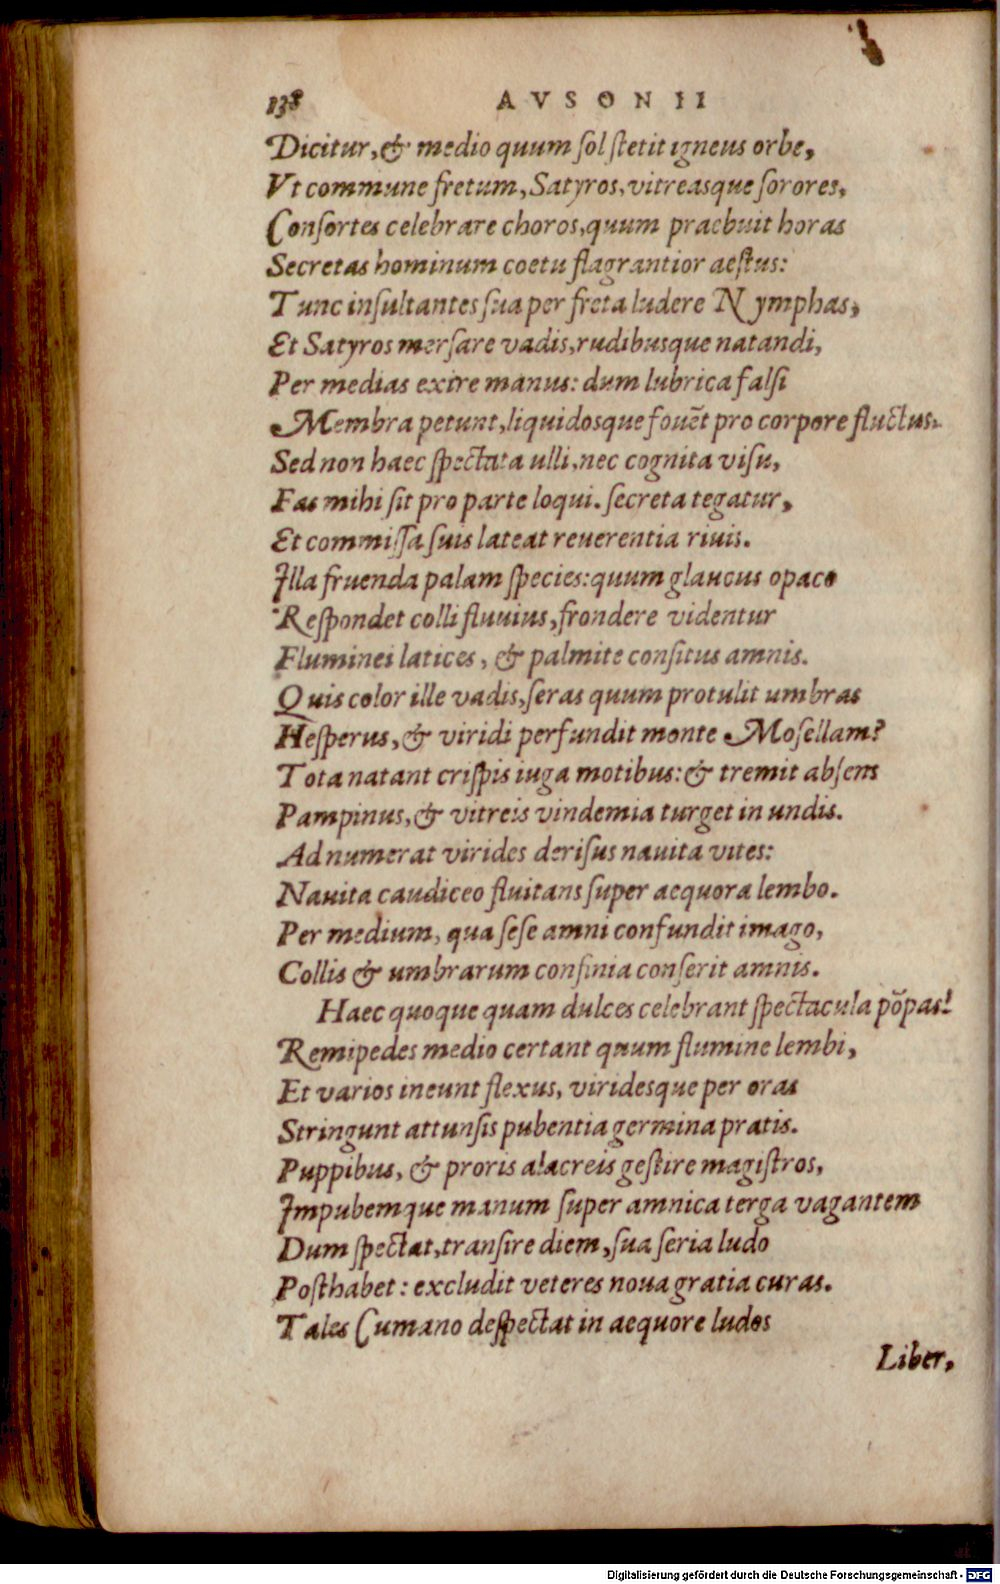 138 AVSONII
Dicitur, & medio quum ſol ſtetit igneus orbe,
Vt commune fretum, Satyros, vitreasque ſorores,
Conſortes celebrare choros, quum praebuit horas
Secretas hominum coetu flagrantior aeſtus:
Tunc inſultantes ſua per freta ludere Nymphas,
Et Satyros merſare vadis, rudibusque natandi,
Per medias exire manus: dum lubrica falſi
Membra petunt, liquidosque fouēt pro corpore fluctus.
Sed non haec ſpectata ulli, nec cognita viſu,
Fas mihi ſit pro parte loqui. ſecreta tegatur,
Et commiſſa ſuis lateat reuerentia riuis.
Illa fruenda palam ſpecies: quum glaucus opaco
Reſpondet colli fluuius, frondere videntur
Fluminei latices, & palmite conſitus amnis.
Quis color ille vadis, ſeras quum protulit umbras
Heſperus, & viridi perfundit monte Moſellam?
Tota natant criſpis iuga motibus: & tremit abſens
Pampinus, & vitreis vindemia turget in undis.
Adnumerat virides deriſus nauita vites:
Nauita caudiceo fluitans ſuper aequora lembo.
Per medium, qua ſeſe amni confundit imago,
Collis & umbrarum confinia conſerit amnis.
Haec quoque quam dulces celebrant ſpectacula pōpas!
Remipedes medio certant quum flumine lembi,
Et varios ineunt flexus, viridesque per oras
Stringunt attunſis pubentia germina pratis.
Puppibus, & proris alacreis geſtire magiſtros,
Impubemque manum ſuper amnica terga vagantem
Dum ſpectat, tranſire diem, ſua ſeria ludo
Poſthabet: excludit veteres noua gratia curas.
Tales Cumano deſpectat in aequore ludos
Liber,
Digitalisierung gefördert durch die Deutsche Forschungsgemeinschaft - DFG